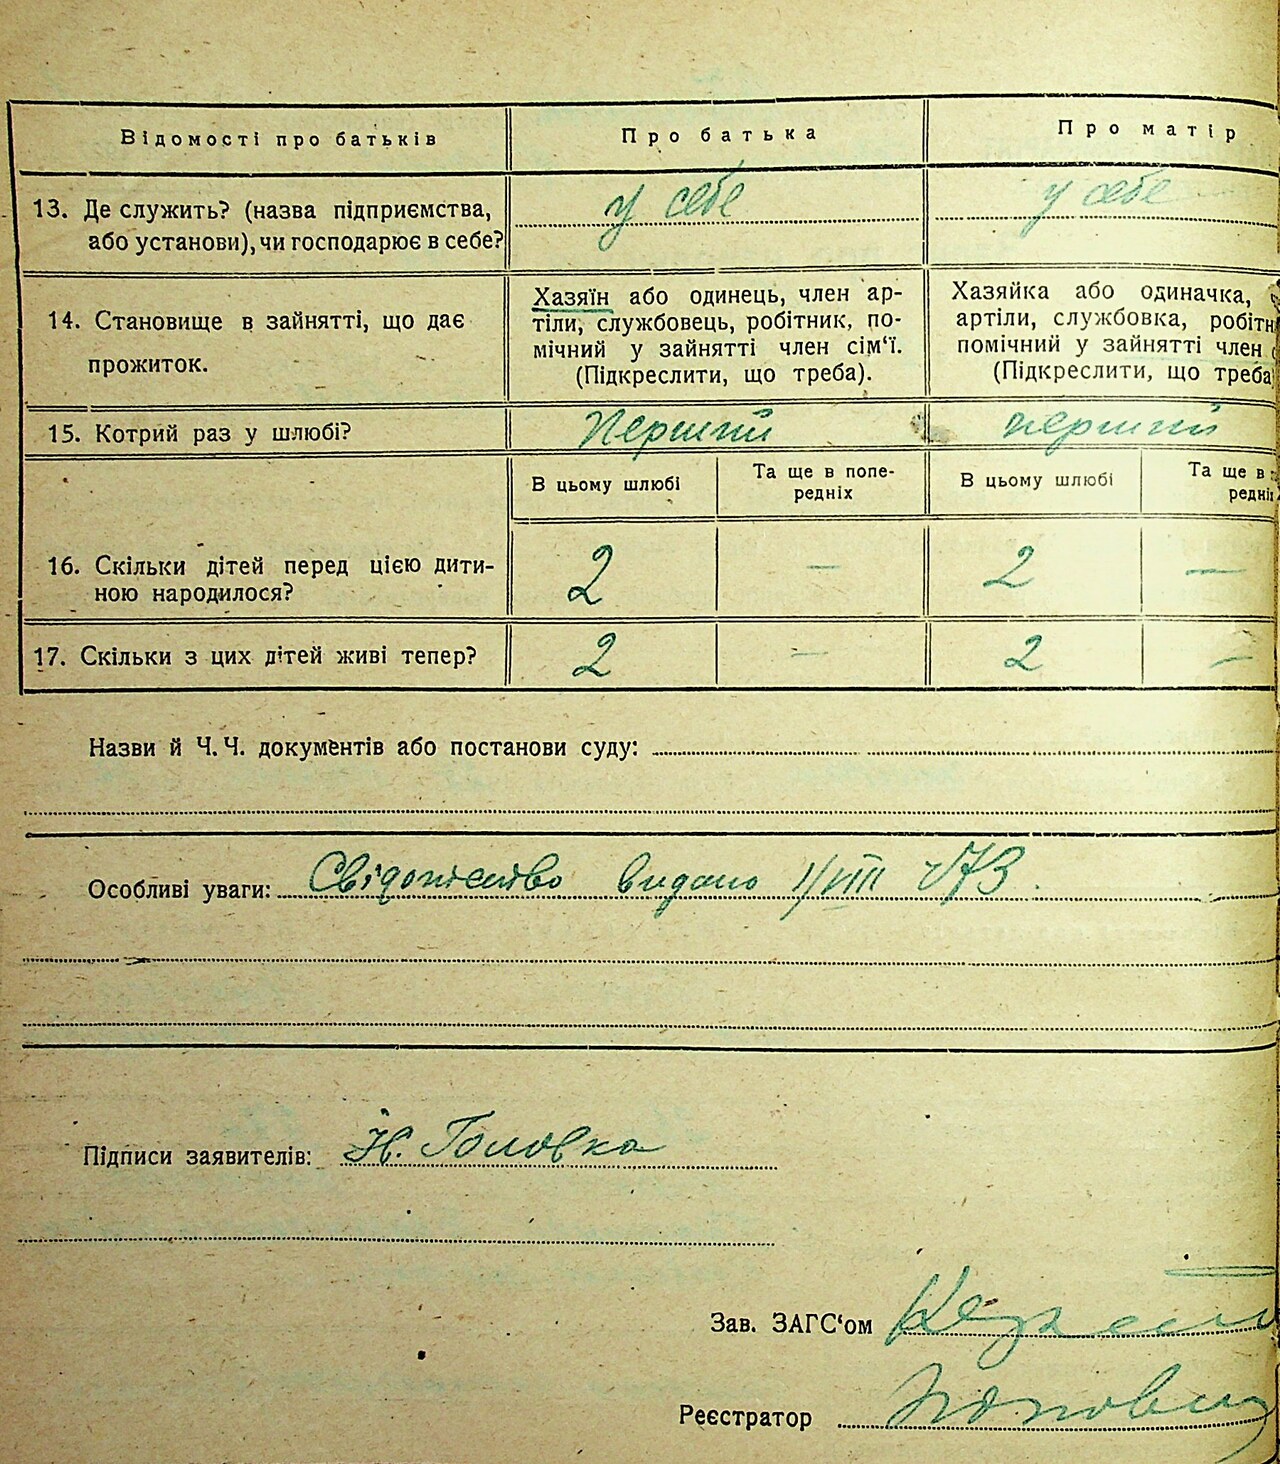 Відомості про батьків
Про батька
Про матір
13. Де служить? (назва підприємства,
або установи), чи господарює в себе?
у себе
у себе
14. Становище в зайнятті, що дає
прожиток.
Хазяїн або одинець, член ар-
тіли, службовець, робітник, по-
мічний у зайнятті член сім‘ї.
(Підкреслити, що треба).
Хазяйка або одиначка,
артіли, службовка, робітн
помічний у зайнятті член
(Підкреслити, що треба
15. Котрий раз у шлюбі?
Перший
перший
В цьому шлюбі
Та ще в попе-
редніх
В цьому шлюбі
Та ще в
редніх
16. Скільки дітей перед цією дити-
ною народилося?
2
—
2
—
17. Скільки з цих дітей живі тепер?
2
—
2
—
Назви й Ч. Ч. документів або постанови суду:
Особливі уваги: Свідоцтво видано 1/VIII 473
Підписи заявителів: Н. Головка
Зав. ЗАГС‘ом
Реєстратор